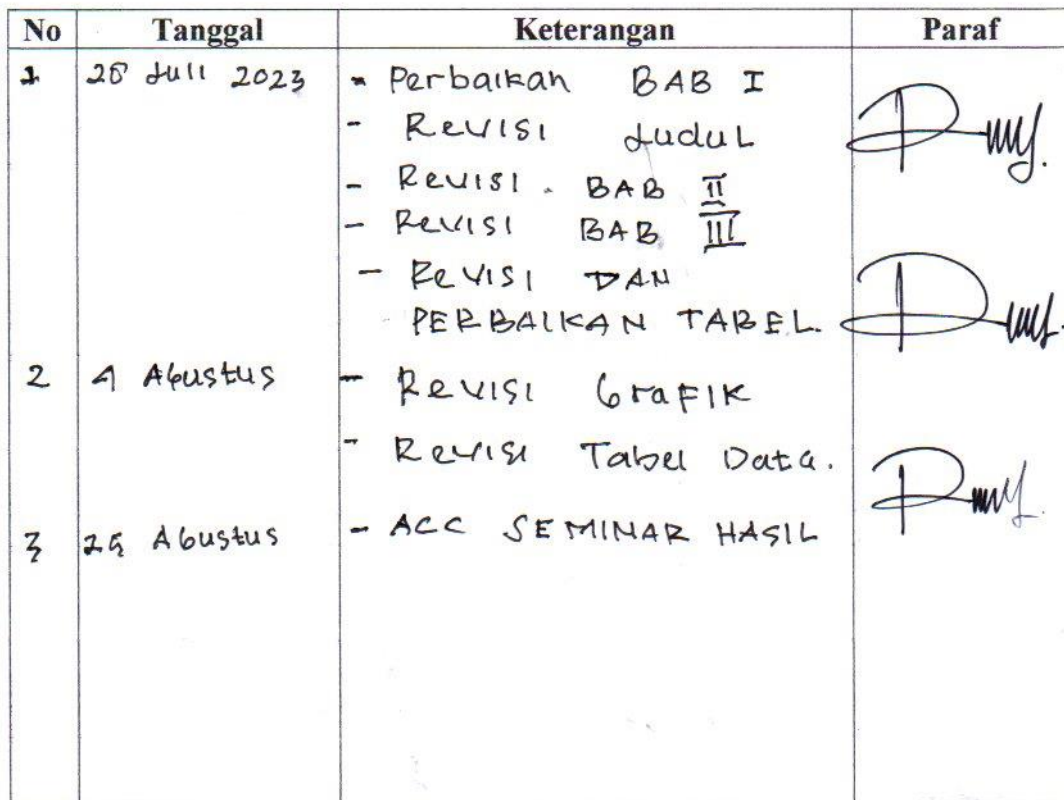 No Tanggal Keterangan Paraf
1 28 Juli 2023 - Perbaikan BAB I
- Revisi Judul
- Revisi BAB II
- Revisi BAB III
- Revisi DAN
PERBAIKAN TABEL.
2 4 Agustus - Revisi Grafik
- Revisi Tabel Data.
3 Agustus - ACC SEMINAR HASIL